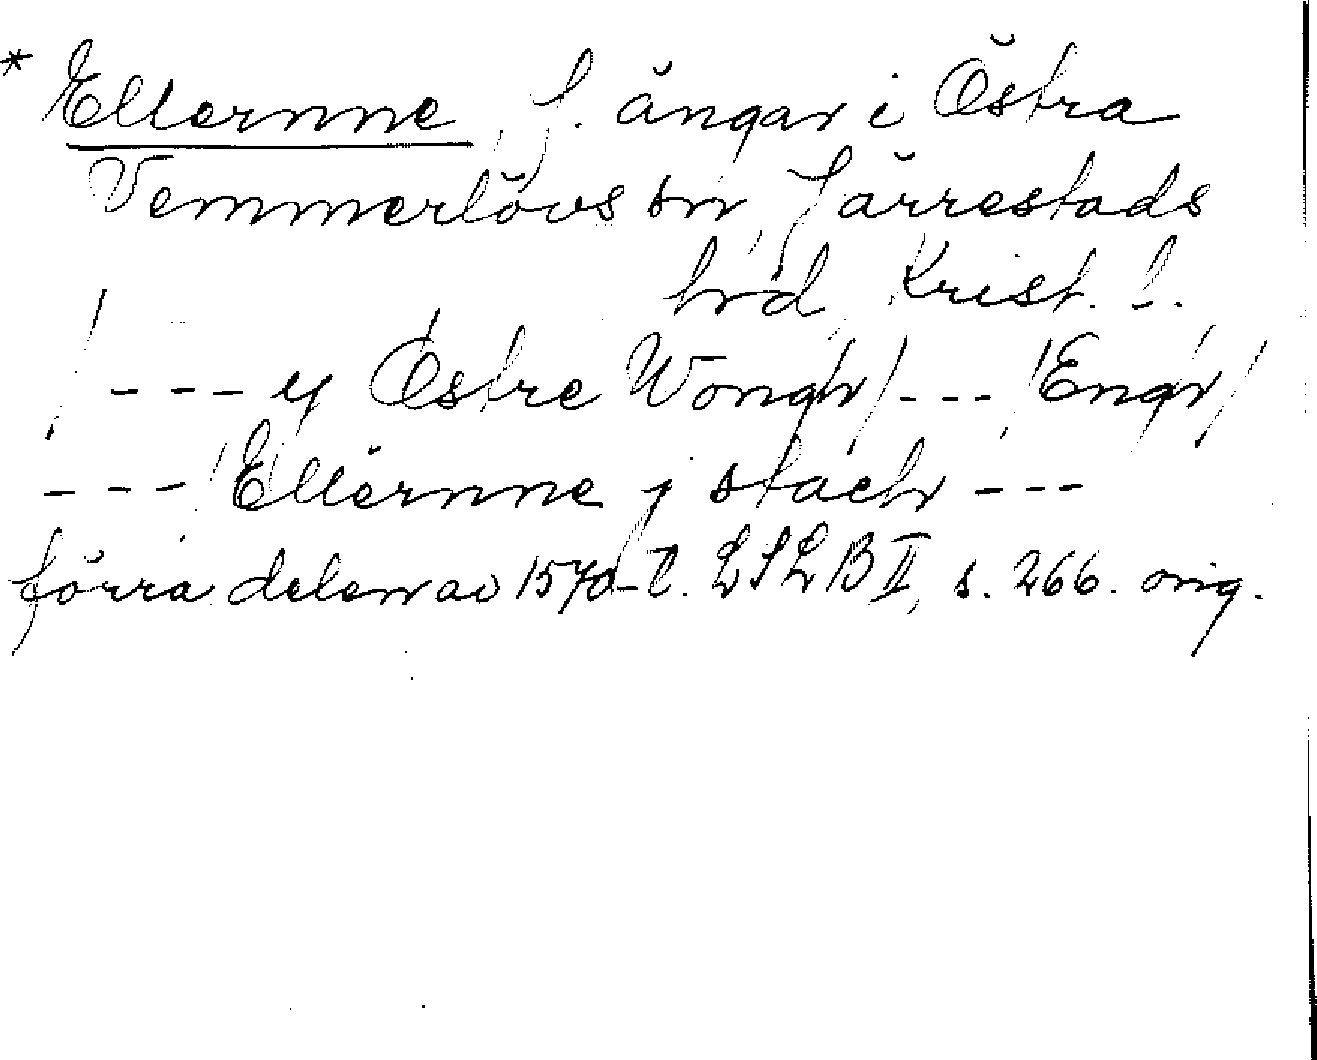 * Ellernne, f. ängar i Östra
Vemmerlövs sn, Järrestads
hrd, Krist. l.
/ --- y Østre Wongh / --- / Engr /
--- / Ellernne j stæchr ---
förra delen av 1570-t. LSLB II, s. 266. orig.